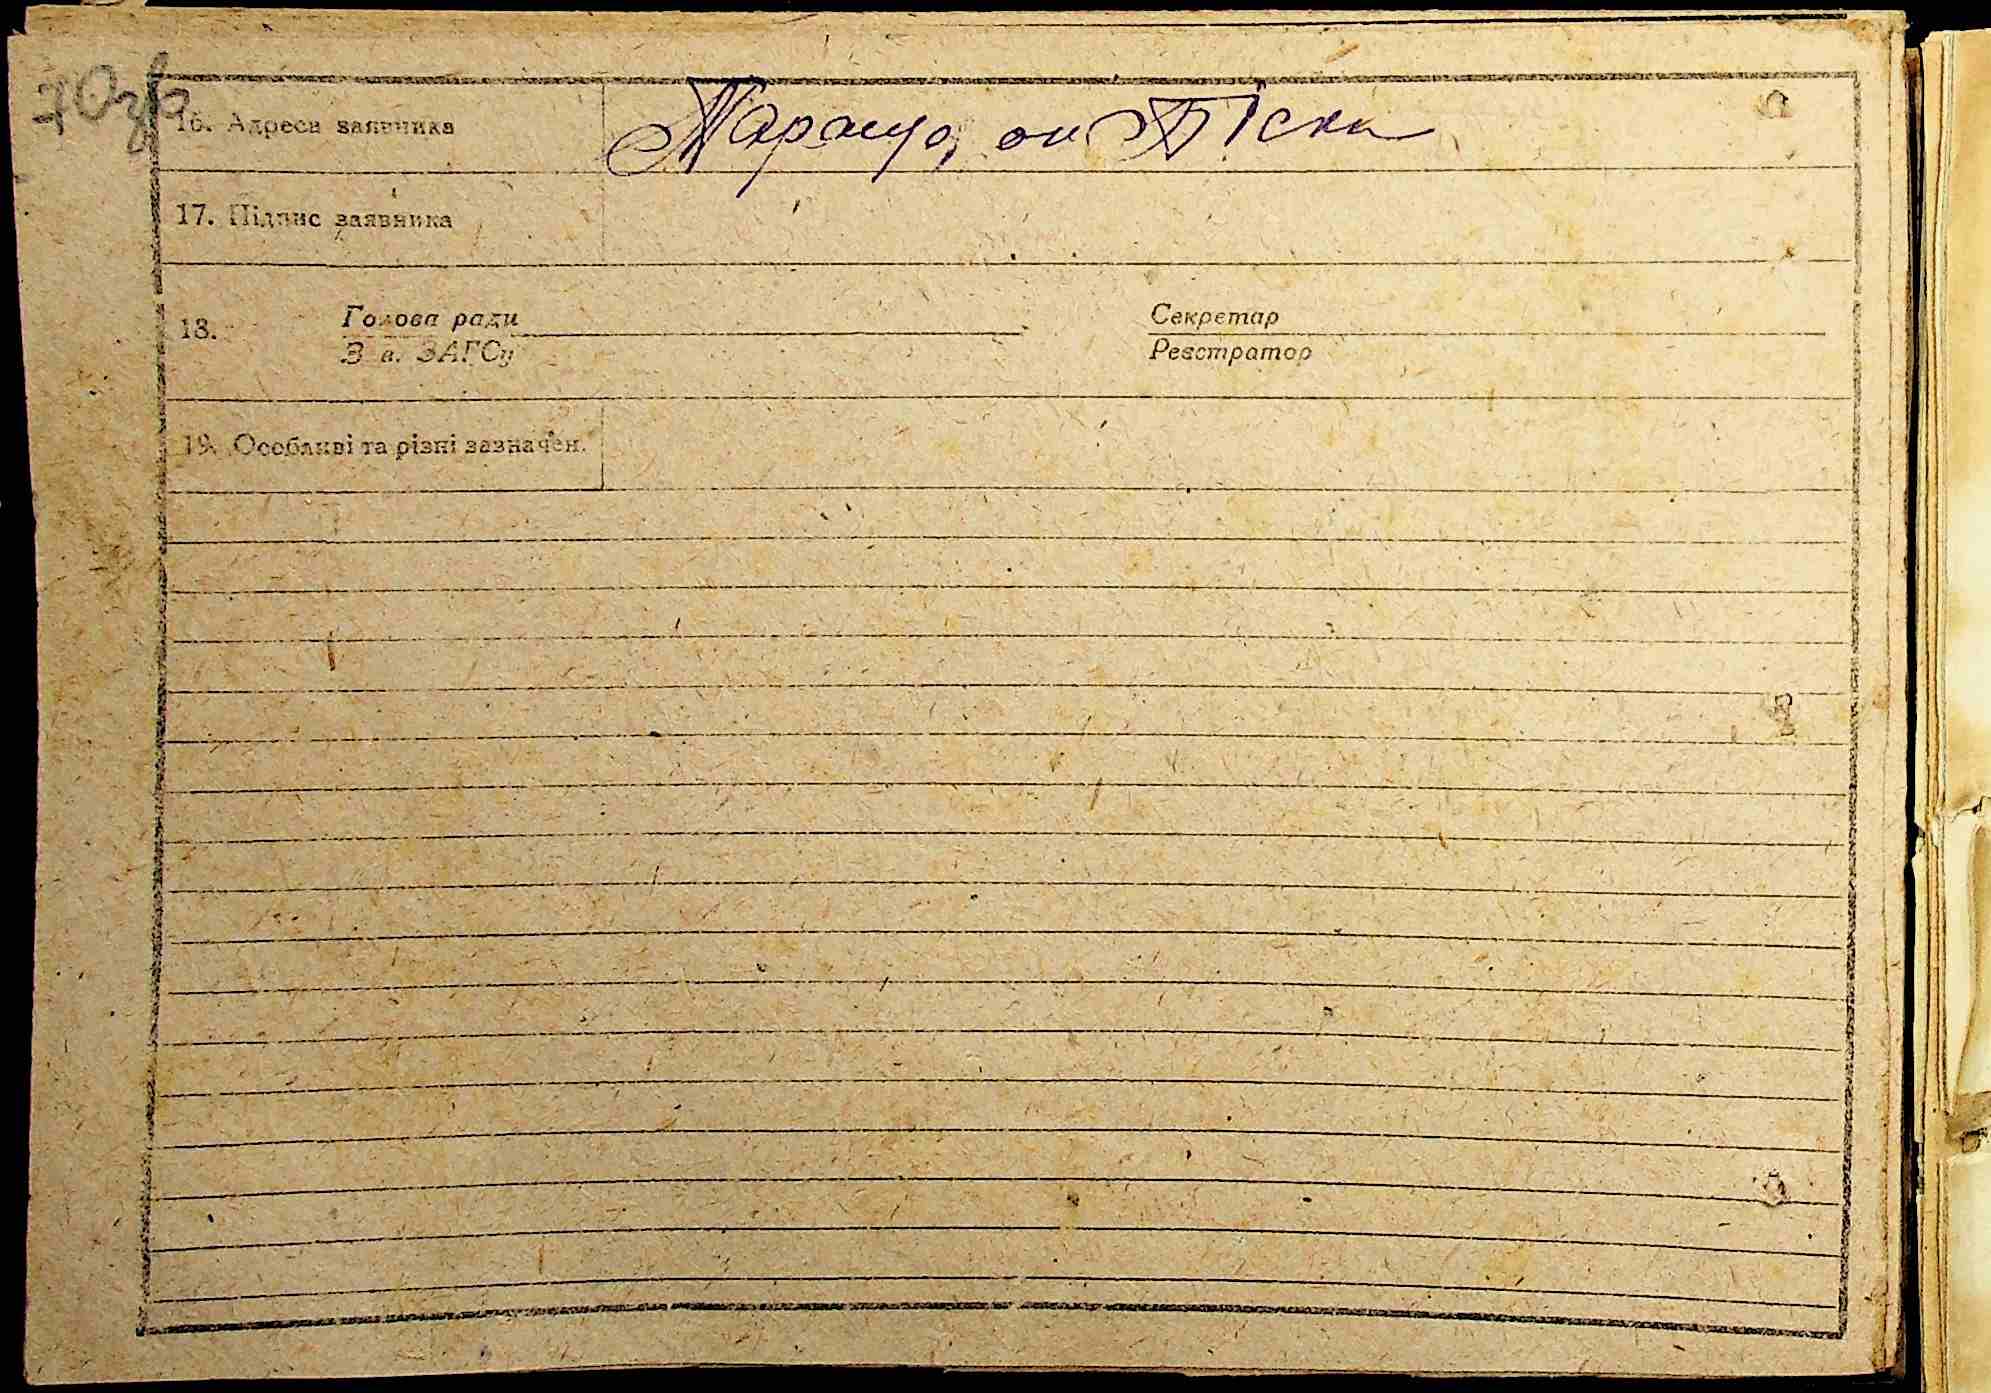 70зв
16. Адреса заявника Тараща, ок Піски
17. Підпис заявника
18. Голова ради Секретар
Зав. ЗАГСу Реєстратор
19. Особливі та різні зазначен.